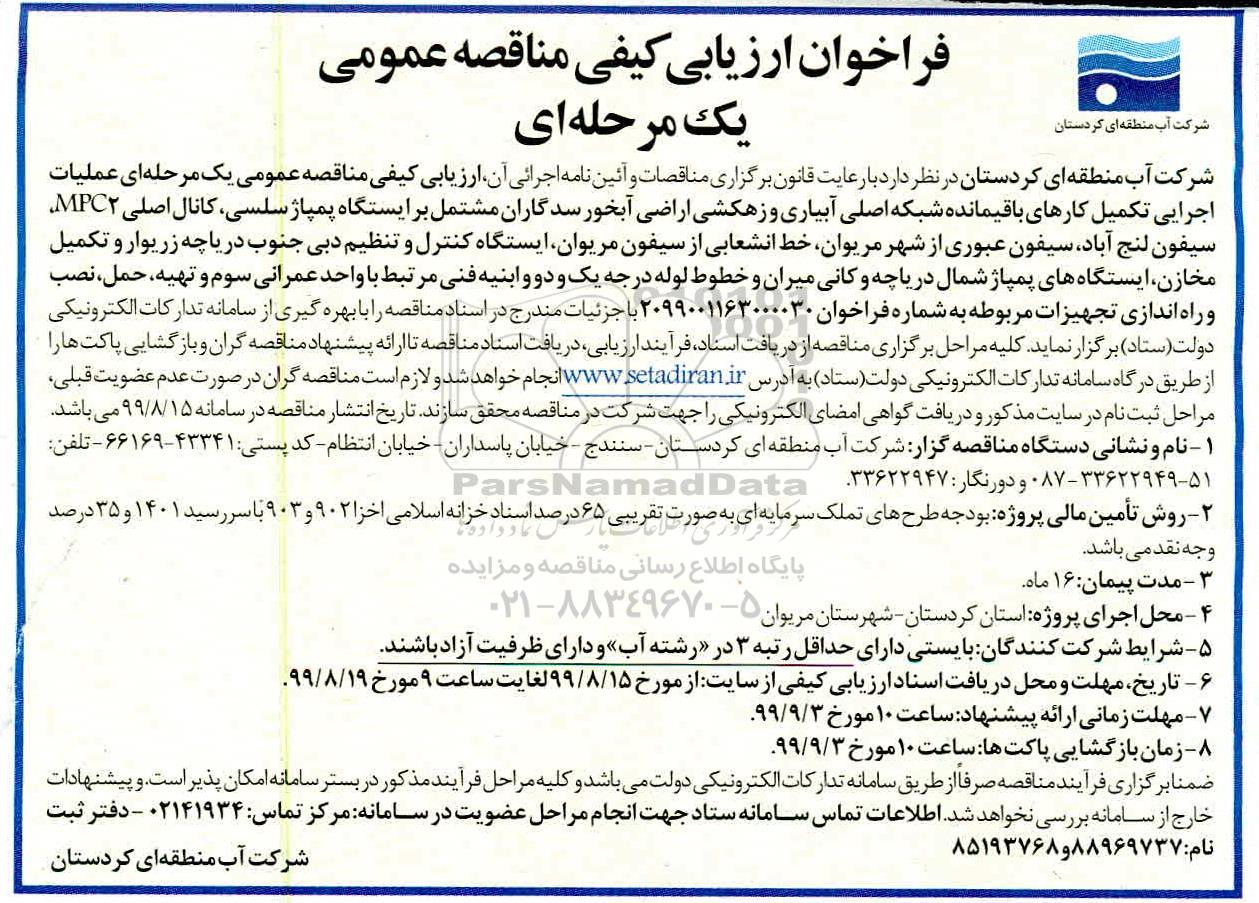 فراخوان ارزیابی کیفی مناقصه عمومی
یک مرحله‌ای
شرکت آب منطقه‌ای کردستان
شرکت آب منطقه‌ای کردستان در نظر دارد با رعایت قانون برگزاری مناقصات و آئین نامه اجرائی آن، ارزیابی کیفی مناقصه عمومی یک مرحله‌ای عملیات
اجرایی تکمیل کارهای باقیمانده شبکه اصلی آبیاری و زهکشی اراضی آبخور سد گاران مشتمل بر ایستگاه پمپاژ سلسی، کانال اصلی MPC۲،
سیفون لنج آباد، سیفون عبوری از شهر مریوان، خط انشعابی از سیفون مریوان، ایستگاه کنترل و تنظیم دبی جنوب دریاچه زریوار و تکمیل
مخازن، ایستگاه‌های پمپاژ شمال دریاچه و کانی میران و خطوط لوله درجه یک و دو و ابنیه فنی مرتبط با واحد عمرانی سوم و تهیه، حمل، نصب
و راه اندازی تجهیزات مربوطه به شماره فراخوان ۲۰۹۹۰۰۱۱۶۳۰۰۰۰۳۰ با جزئیات مندرج در اسناد مناقصه را با بهره گیری از سامانه تدارکات الکترونیکی
دولت (ستاد) برگزار نماید. کلیه مراحل برگزاری مناقصه از دریافت اسناد، فرآیند ارزیابی، دریافت اسناد مناقصه تا ارائه پیشنهاد مناقصه گران و بازگشایی پاکت‌ها را
از طریق درگاه سامانه تدارکات الکترونیکی دولت (ستاد) به آدرس www.setadiran.ir انجام خواهد شد و لازم است مناقصه گران در صورت عدم عضویت قبلی،
مراحل ثبت نام در سایت مذکور و دریافت گواهی امضای الکترونیکی را جهت شرکت در مناقصه محقق سازند. تاریخ انتشار مناقصه در سامانه ۹۹/۸/۱۵ می باشد.
۱- نام و نشانی دستگاه مناقصه گزار: شرکت آب منطقه ای کردستان- سنندج - خیابان پاسداران - خیابان انتظام- کد پستی: ۴۳۳۴۱-۶۶۱۶۹ - تلفن:
۵۱-۳۳۶۲۲۹۴۹-۰۸۷ و دورنگار: ۳۳۶۲۲۹۴۷.
۲- روش تأمین مالی پروژه: بودجه طرح های تملک سرمایه‌ای به صورت تقریبی ۶۵ درصد اسناد خزانه اسلامی اخزا ۹۰۲ و ۹۰۳ با سررسید ۱۴۰۱ و ۳۵ درصد
وجه نقد می باشد.
۳- مدت پیمان: ۱۶ ماه.
۴- محل اجرای پروژه: استان کردستان- شهرستان مریوان
۵- شرایط شرکت کنندگان: بایستی دارای حداقل رتبه ۳ در «رشته آب» و دارای ظرفیت آزاد باشند.
۶- تاریخ، مهلت و محل دریافت اسناد ارزیابی کیفی از سایت: از مورخ ۹۹/۸/۱۵ لغایت ساعت ۹ مورخ ۹۹/۸/۱۹.
۷- مهلت زمانی ارائه پیشنهاد: ساعت ۱۰ مورخ ۹۹/۹/۳.
۸- زمان بازگشایی پاکت ها: ساعت ۱۰ مورخ ۹۹/۹/۳.
ضمنا برگزاری فرآیند مناقصه صرفاً از طریق سامانه تدارکات الکترونیکی دولت می باشد و کلیه مراحل فرآیند مذکور در بستر سامانه امکان پذیر است. و پیشنهادات
خارج از سامانه بررسی نخواهد شد. اطلاعات تماس سامانه ستاد جهت انجام مراحل عضویت در سامانه: مرکز تماس: ۰۲۱۴۱۹۳۴ - دفتر ثبت
نام: ۸۸۹۶۹۷۳۷ و ۸۵۱۹۳۷۶۸
شرکت آب منطقه‌ای کردستان
ParsNamadData
مرکز فرآوری اطلاعات پارس نماد داده‌ها
پایگاه اطلاع رسانی مناقصه و مزایده
۰۲۱-۸۸۳۴۹۶۷۰-۵